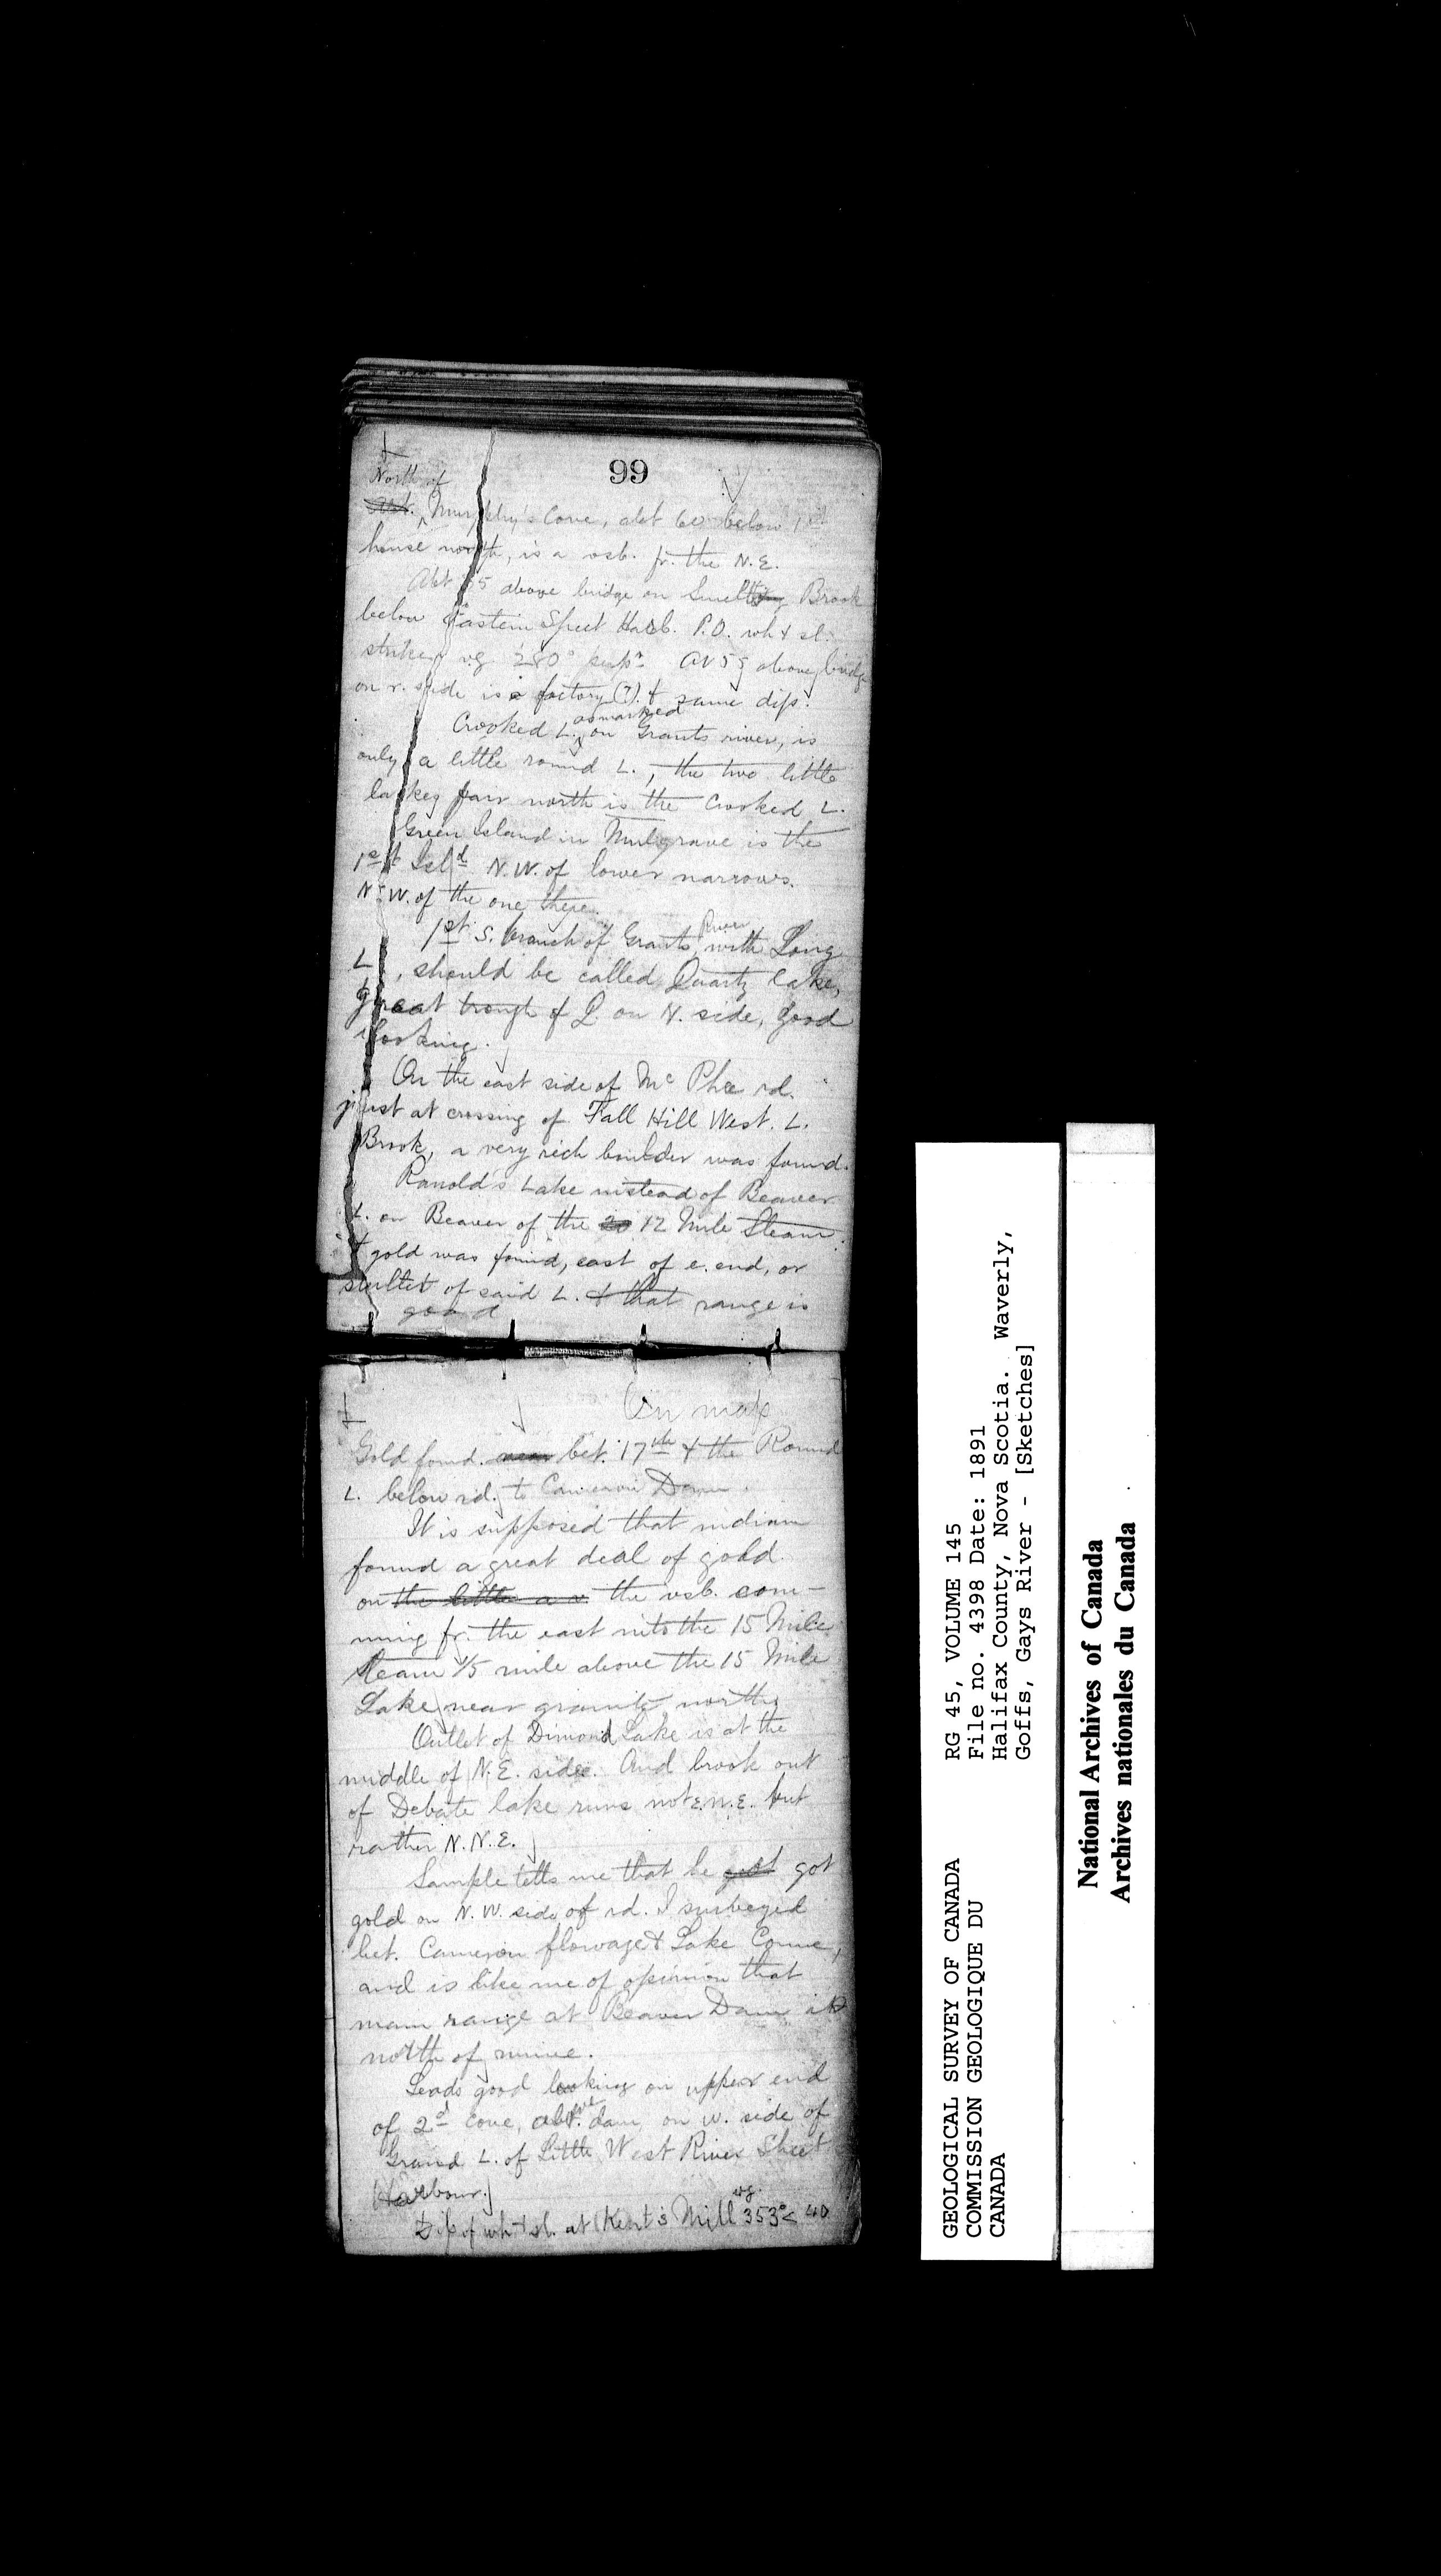 99
North of
Abt. Murphy's Cove, abt 60 below 1st
house north, is a vsb. fr. the N.E.
Abt 55 above bridge on Smelt Brook
below Eastern Sheet Harb. P.O. wh + sl.
strike vg 280° perpr. At 55 above bridge
on r. side is a factory (?) + same dip.
Crooked L. as marked on Grants river, is
only a little round L., the two little
lakes fair north is the Crooked L.
Green Island in Mulgrave is the
1st Isld N.W. of lower narrows.
N.W. of the one there.
1st S. branch of Grants River with Long
L., should be called Quartz lake,
great trough of Q. on N. side, good
looking.
On the east side of Mc Phee rd.
just at crossing of Fall Hill West. L.
Brook, a very rich boulder was found.
Ranold's Lake instead of Beaver
L. or Beaver of the 20 12 Mile Steam.
+ gold was found, east of e. end, or
outlet of said L. + that range is
good
On map
Gold found. near bet. 17th + the Round
L. below rd. to Cameron Dam.
It is supposed that indian
found a great deal of gold
on the little the vsb. com-
ming fr. the east into the 15 Mile
steam 1/5 mile above the 15 Mile
Lake near granite north
Outlet of Dimond Lake is at the
middle of N.E. side. And brook out
of Debate lake runs not E.N.E. but
rather N.N.E.
Sample tells me that he got
gold on N.W. side of rd. I surbeyed
bet. Cameron flowage + Lake Come,
and is like me of opinion that
main range at Beaver Dam is
north of mine.
Leads good looking on upper end
of 2d cove, above dam on w. side of
Grand L. of Little West River Sheet
Harbour.
Dip of wh + sl. at Kent's Mill vg. 353°< 40
GEOLOGICAL SURVEY OF CANADA
COMMISSION GEOLOGIQUE DU
CANADA
RG 45, VOLUME 145
File no. 4398 Date: 1891
Halifax County, Nova Scotia. Waverly,
Goffs, Gays River - [Sketches]
National Archives of Canada
Archives nationales du Canada